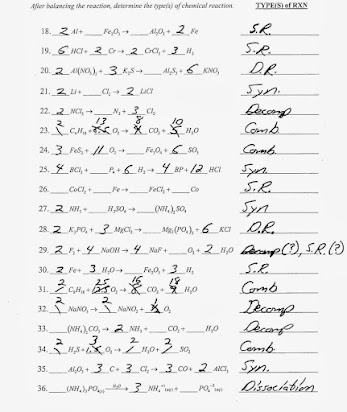 After balancing the reaction, determine the type(s) of chemical reaction. TYPE(S) of RXN
18. 2 Al + Fe₂O₃ → Al₂O₃ + 2 Fe S.R.
19. 6 HCl + 2 Cr → 2 CrCl₃ + 3 H₂ S.R.
20. 2 Al(NO₃)₃ + 3 K₂S → Al₂S₃ + 6 KNO₃ D.R.
21. 2 Li + Cl₂ → 2 LiCl Syn.
22. 2 NCl₃ → N₂ + 3 Cl₂ Decomp
23. 2 C₄H₁₀ + 13 O₂ → 8 CO₂ + 10 H₂O Comb
24. 3 FeS₂ + 11 O₂ → Fe₃O₄ + 6 SO₂ Comb.
25. 4 BCl₃ + P₄ + 6 H₂ → 4 BP + 12 HCl Syn
26. CoCl₂ + Fe → FeCl₂ + Co S.R.
27. 2 NH₃ + H₂SO₄ → (NH₄)₂SO₄ Syn
28. 2 K₃PO₄ + 3 MgCl₂ → Mg₃(PO₄)₂ + 6 KCl D.R.
29. 2 F₂ + 4 NaOH → 4 NaF + O₂ + 2 H₂O Decomp (?), S.R. (?)
30. 2 Fe + 3 H₂O → Fe₂O₃ + 3 H₂ S.R.
31. 2 C₈H₁₈ + 25 O₂ → 16 CO₂ + 18 H₂O Comb
32. 2 NaNO₃ → 2 NaNO₂ + O₂ Decomp
33. (NH₄)₂CO₃ → 2 NH₃ + CO₂ + H₂O Decomp
34. 2 H₂S + 3 O₂ → 2 H₂O + 2 SO₂ Comb
35. Al₂O₃ + 3 C + 3 Cl₂ → 3 CO + 2 AlCl₃ Syn.
36. (NH₄)₃PO₄(s) H₂O → 3 NH₄⁺¹(aq) + PO₄⁻³(aq) Dissociation